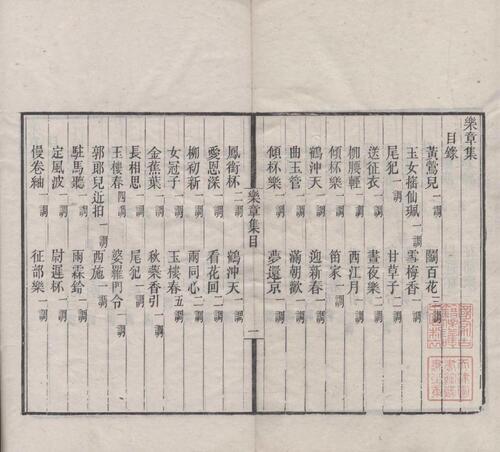 樂章集
目錄
黃鶯兒一調 鬬百花三調
玉女搖仙珮一調 雪梅香一調
尾犯一調 甘草子二調
送征衣一調 晝夜樂二調
柳腰輕一調 西江月一調
傾杯樂一調 笛家一調
鶴沖天一調 迎新春一調
曲玉管一調 滿朝歡一調
傾杯樂一調 夢還京一調
樂章集目 一
鳳銜杯二調 鶴沖天一調
愛恩深一調 看花回二調
柳初新一調 兩同心二調
女冠子一調 玉樓春五調
金蕉葉一調 秋蘂香引一調
長相思一調 尾犯一調
玉樓春四調 婆羅門令一調
郭郎兒近拍一調 西施一調
駐馬聽一調 雨霖鈴一調
定風波一調 尉遲杯一調
慢卷紬一調 征部樂一調